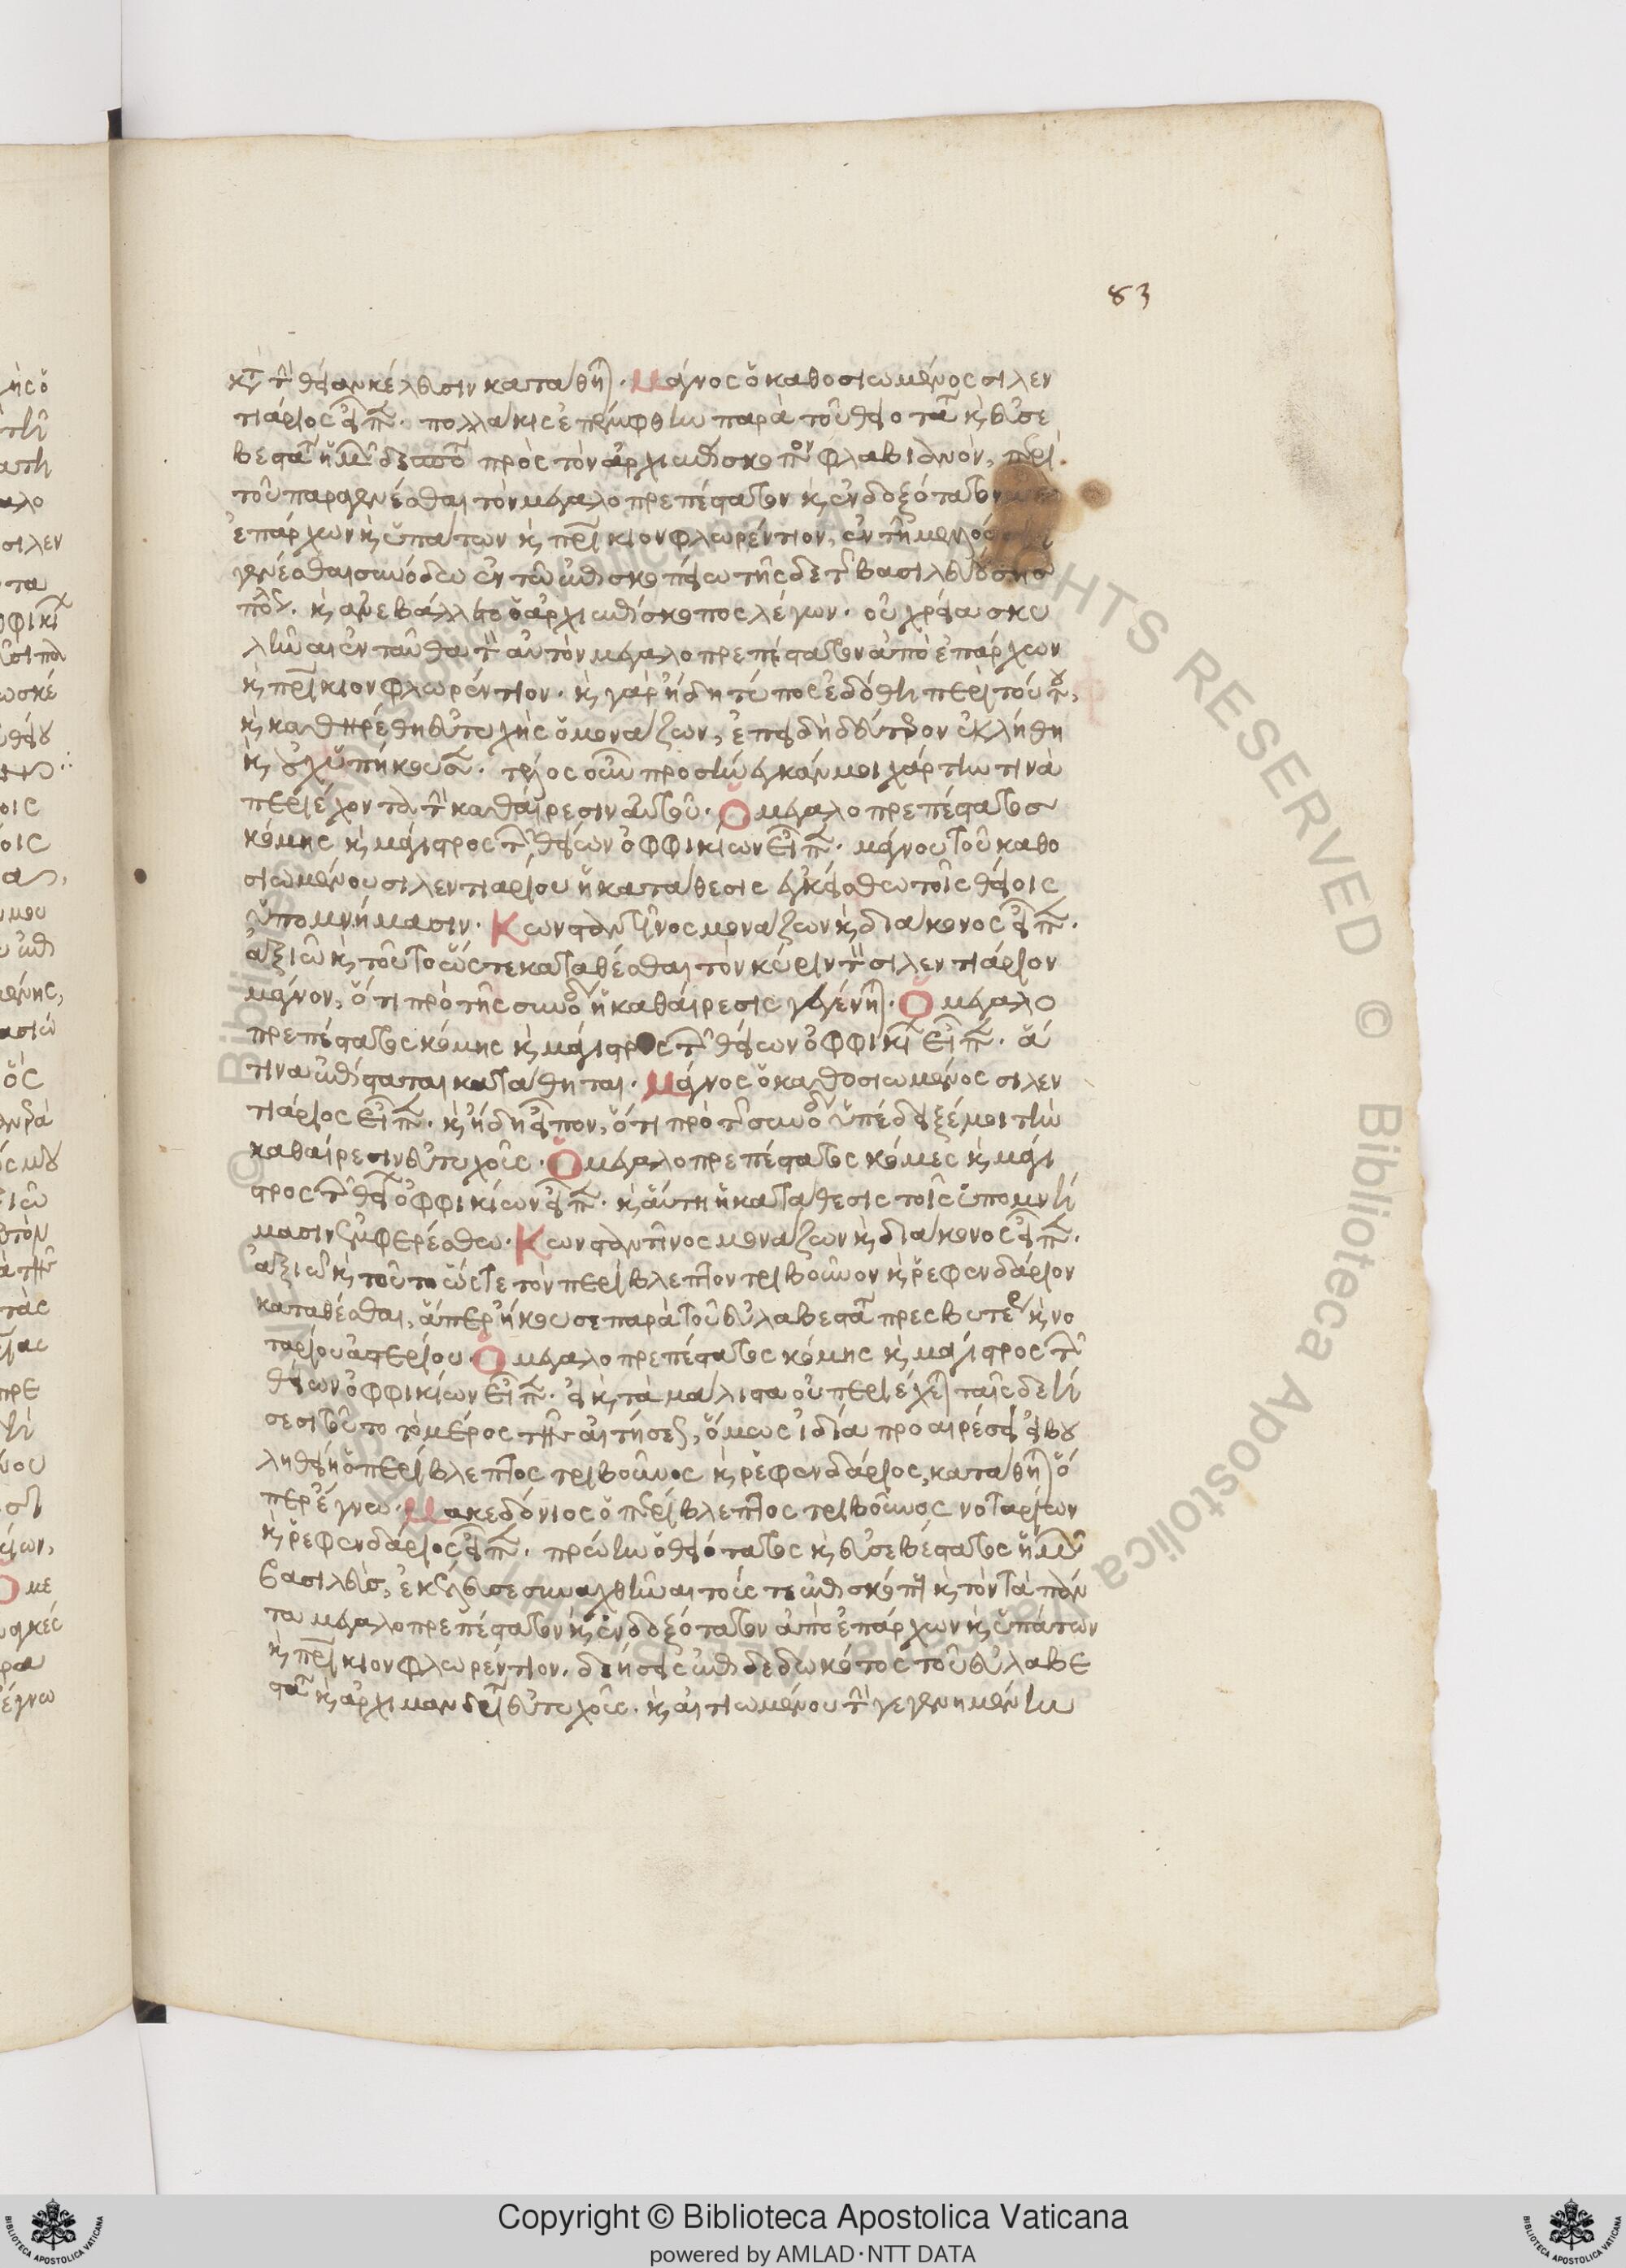 83
κατὰ τὴν θείαν κέλευσιν καταθήσεται. Μάγνος ὁ καθοσιωμένος σιλεν
τιάριος εἶπεν. πολλάκις ἐπέμφθην παρὰ τοῦ θειοτάτου καὶ εὐσε
βεστάτου ἡμῶν δεσπότου πρὸς τὸν ἀρχιεπίσκοπον φλαβιανὸν, περὶ
τοῦ παραγενέσθαι τὸν μεγαλοπρεπέστατον καὶ ἐνδοξότατον
ἐπάρχων καὶ ὑπάτων καὶ πατρίκιον φλωρέντιον, ἐν τῇ μελλούσῃ
γενέσθαι συνόδω ἐν τῶ ἐπισκοπείω τῆσδε τῆς βασιλευούσης
πόλεως. καὶ ἀνεβάλλετο ὁ ἀρχιεπίσκοπος λέγων. οὐ χρεία σκυ
λῆναι ἐνταῦθα τὸν αὐτὸν μεγαλοπρεπέστατον ἀπὸ ἐπάρχων
καὶ πατρίκιον φλωρέντιον. καὶ γὰρ ἤδη τύπος ἐδόθη περὶ τούτου,
καὶ καθηρέθη εὐτυχὴς ὁ μονάζων, ἐπειδὴ δεύτερον ἐκλήθη
καὶ οὐχ ὑπήκουσεν. τέλος οὖν προσήνεγκάν μοι χάρτην τινὰ
περιέχοντα τὴν καθαίρεσιν αὐτοῦ. Ὁ μεγαλοπρεπέστατος
κόμης καὶ μάγιστρος τῶν θείων ὀφφικίων εἶπεν. μάγνου τοῦ καθο
σιωμένου σιλεντιαρίου ἡ κατάθεσις ἐγκείσθω τοῖς θείοις
ὑπομνήμασιν. Κωνσταντῖνος μονάζων καὶ διάκονος εἶπεν.
ἀξιῶ καὶ τοῦτο ὥστε καταθέσθαι τὸν κύριν τὸν σιλεντιάριον
μάγνον, ὅτι πρὸ τῆς συνόδου ἡ καθαίρεσις γεγένηται. Ὁ μεγαλο
πρεπέστατος κόμης καὶ μάγιστρος τῶν θείων ὀφφικίων εἶπεν. ἅ
τινα ἐπίσταται καταθῆται. Μάγνος ὁ καθοσιωμένος σιλεν
τιάριος εἶπεν. καὶ ἤδη εἶπον, ὅτι πρὸ τῆς συνόδου ὑπέδειξέ μοι τὴν
καθαίρεσιν εὐτυχοῦς. Ὁ μεγαλοπρεπέστατος κόμες καὶ μάγι
στρος τῶν θείων ὀφφικίων εἶπεν. καὶ αὕτη ἡ κατάθεσις τοῖς ὑπομνή
μασιν ἐμφερέσθω. Κωνσταντῖνος μονάζων καὶ διάκονος εἶπεν.
ἀξιῶ καὶ τοῦτο ὥστε τὸν περίβλεπτον τριβοῦνον καὶ ῥεφενδάριον
καταθέσθαι, ἅπερ ἤκουσε παρὰ τοῦ εὐλαβεστάτου πρεσβυτέρου καὶ νο
ταρίου ἀστερίου. Ὁ μεγαλοπρεπέστατος κόμης καὶ μάγιστρος τῶν
θείων ὀφφικίων εἶπεν. εἰ καὶ τὰ μάλιστα οὐ περιέχεται ταῖς δεή
σεσι τοῦτο τὸ μέρος τῆς αἰτήσεως, ὅμως ἰδία προαιρέσει εἰ βου
ληθείη ὁ περίβλεπτος τριβοῦνος καὶ ῥεφενδάριος, καταθῆται ὅ
περ ἔγνω. Μακεδόνιος ὁ περίβλεπτος τριβοῦνος νοταρίων
καὶ ῥεφενδάριος εἶπεν. πρώην ὁ θειότατος καὶ εὐσεβέστατος ἡμῶν
βασιλεὺς, ἐκέλευσε συναχθῆναι τούς τε ἐπισκόπους καὶ τὸν τὰ πάν
τα μεγαλοπρεπέστατον καὶ ἐνδοξότατον ἀπὸ ἐπάρχων καὶ ὑπάτων
καὶ πατρίκιον φλωρέντιον. δεήσεις ἐπιδεδωκότος τοῦ εὐλαβε
στάτου καὶ ἀρχιμανδρίτου εὐτυχοῦς. καὶ αἰτιωμένου τὴν γεγενημένην
Copyright © Biblioteca Apostolica Vaticana
powered by AMLAD·NTT DATA